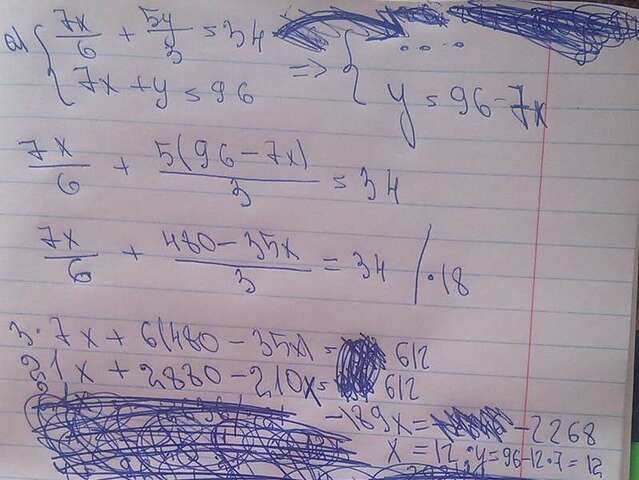 a) { 7x/6 + 5y/3 = 34 => { ....
7x + y = 96 y = 96 - 7x
7x/6 + 5(96 - 7x)/3 = 34
7x/6 + 480 - 35x/3 = 34 / · 18
3 · 7x + 6(480 - 35x) = 612
21x + 2880 - 210x = 612
-189x = -2268
x = 12 · y = 96 - 12 · 7 = 12